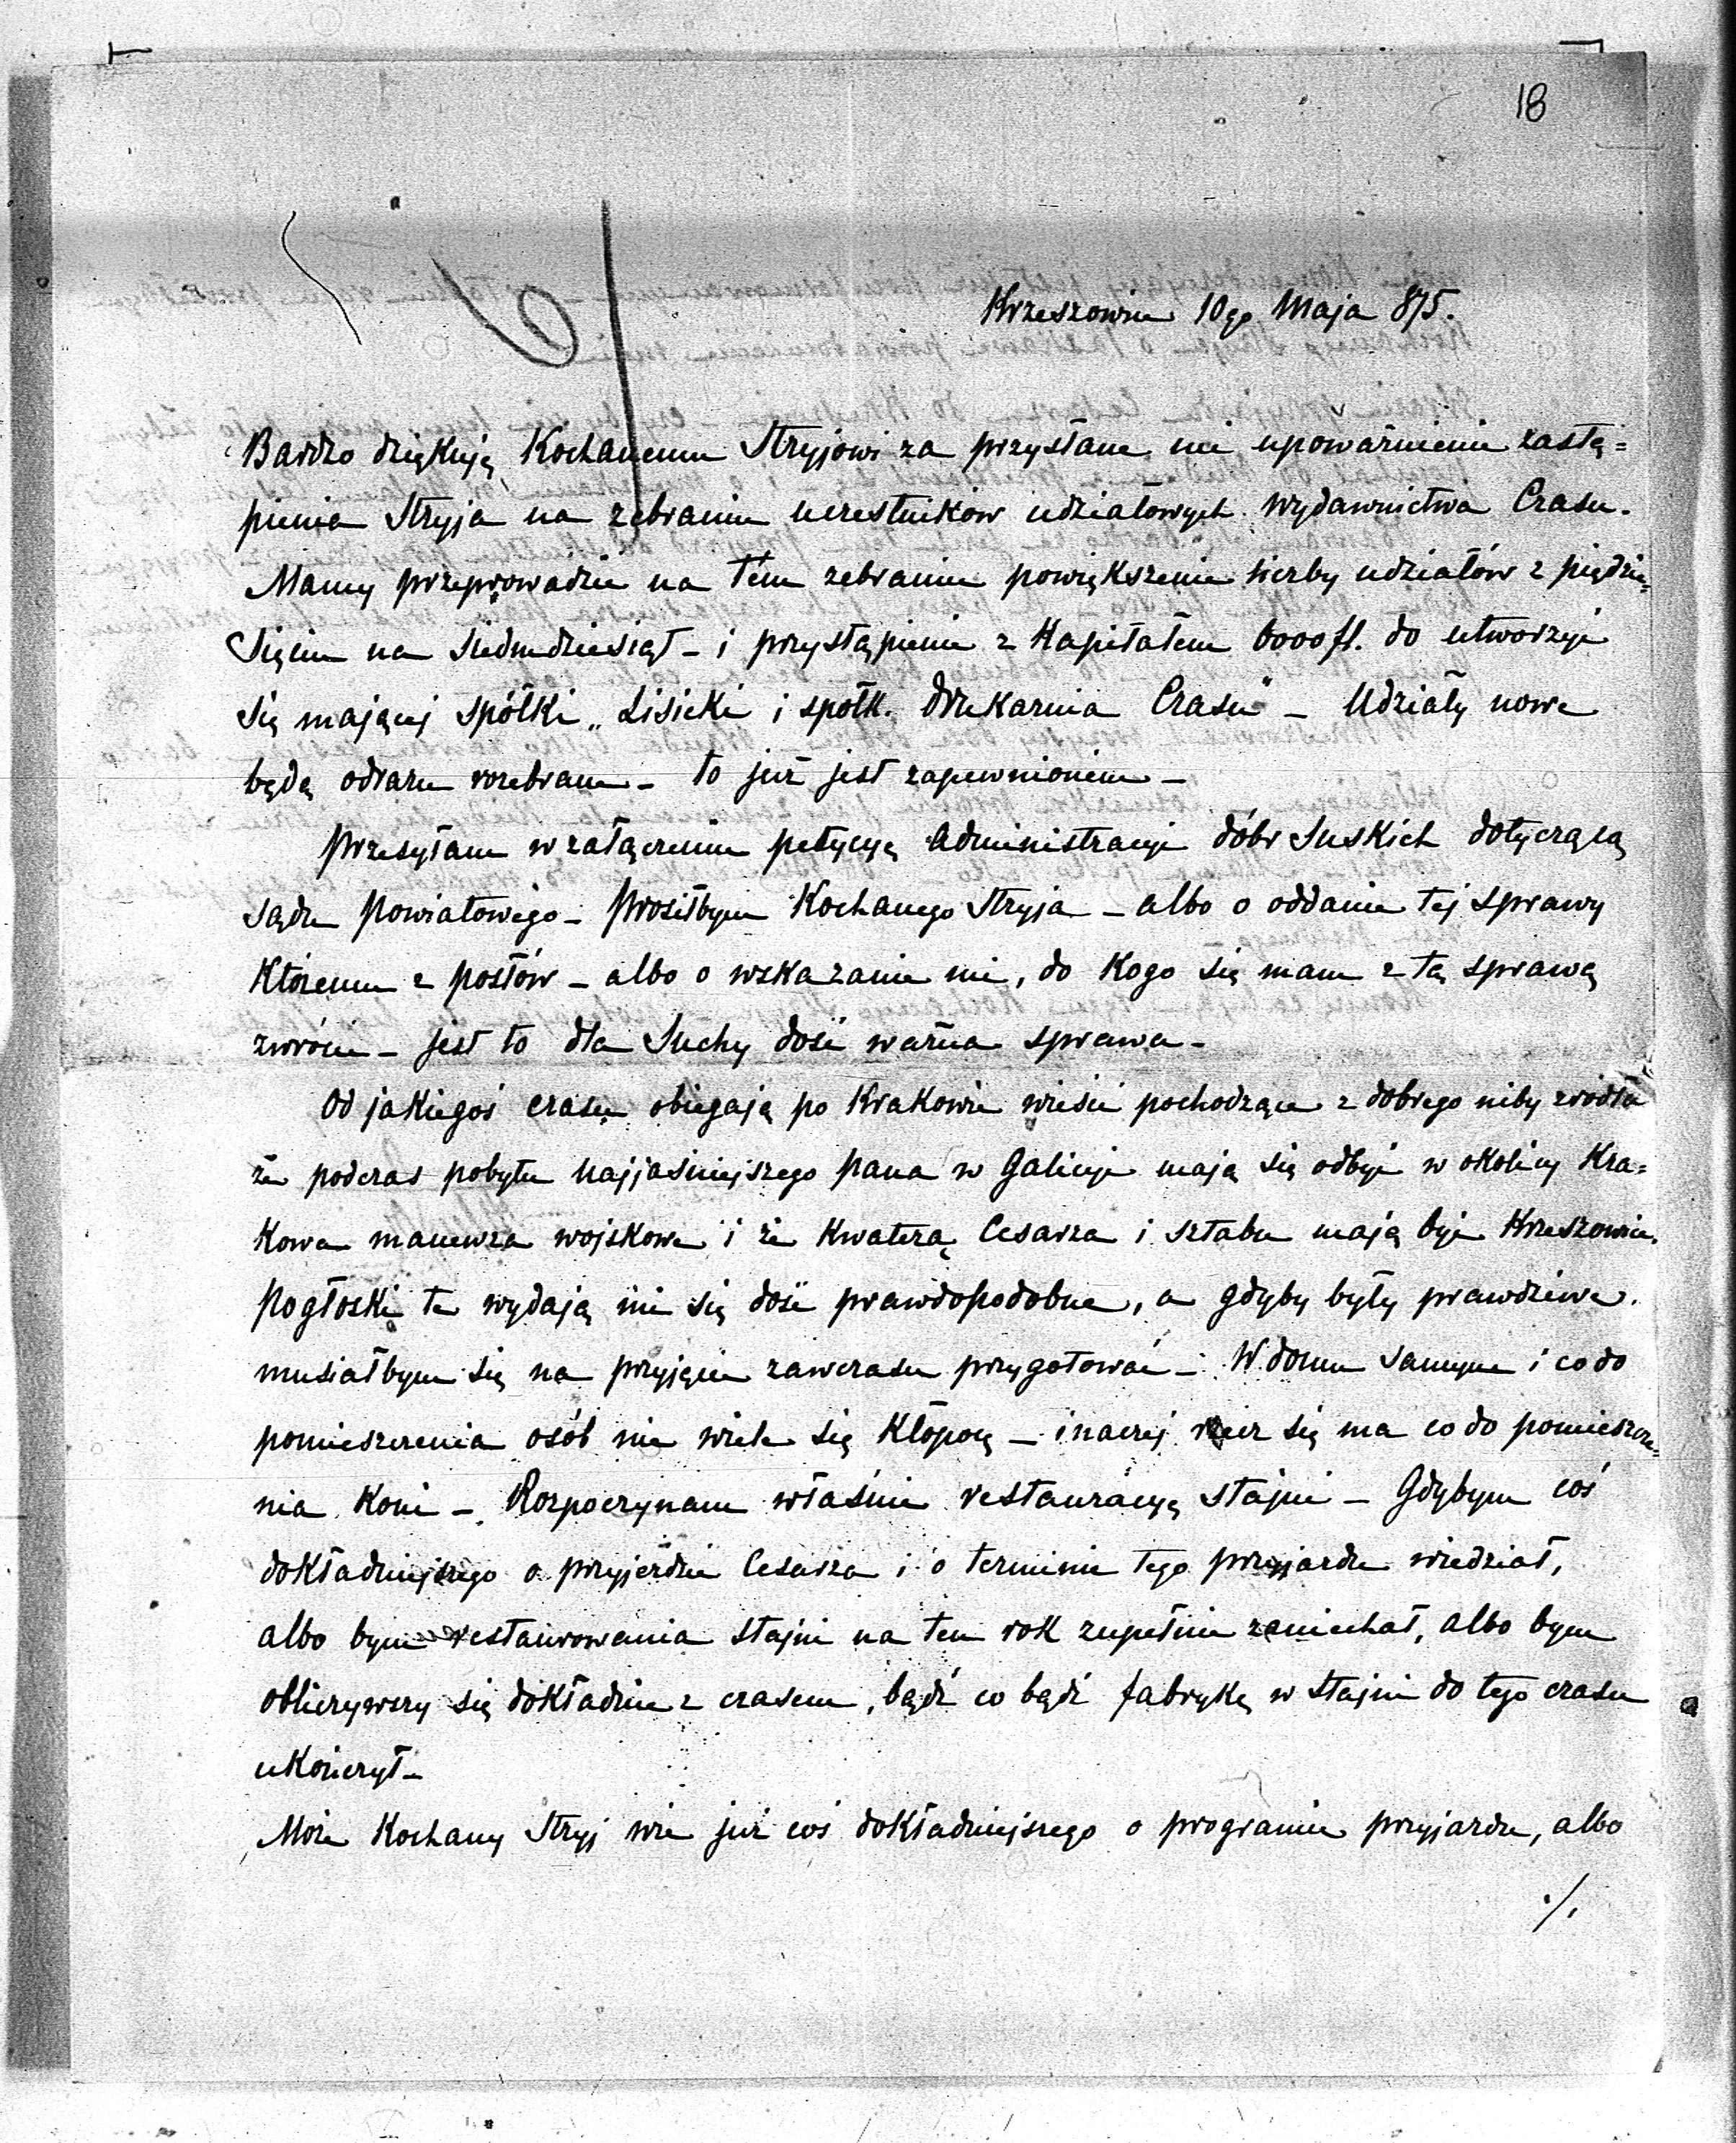 18
Krzeszowice 10go Maja 875.
Bardzo dziękuję Kochanemu Stryjowi za przysłane mi upoważnienie zastą=
pienia Stryja na zebraniu uczestników udziałowych wydawnictwa Czasu.
Mamy przeprowadzić na tém zebraniu powiększenie liczby udziałów z pięćdzie=
sięciu na siedmdziesiąt – i przystąpienie z kapitałem 6000 fl. do utworzyć
się mającej spółki „Lisicki i spółk. drukarnia Czasu" – Udziały nowe
będą odrazu rozebrane – to już jest zapewnionem –
Przesyłam w załączeniu petycyę Administracyi dóbr Suskich dotyczącą
sądu powiatowego – Prosiłbym Kochanego Stryja – albo o oddanie tej sprawy
któremu z posłów – albo o wskazanie mi, do kogo się mam z tą sprawą
zwrócić – jest to dla Suchy dość ważna sprawa –
Od jakiegoś czasu obiegają po Krakowie wieści pochodzące z dobrego niby zrodła
że podczas pobytu Najjaśniejszego Pana w Galicyi mają się odbyć w okolicy Kra=
kowa manewra wojskowe i że kwaterą Cesarza i sztabu mają być Krzeszowice.
Pogłoski te wydają mi się dość prawdopodobne, a gdyby były prawdziwe.
musiałbym się na przyjęcie zawczasu przygotować – W domu samym i co do
pomieszczenia osób nie wiele się kłopocę – inaczej rzecz się ma co do pomieszcze=
nia koni – Rozpoczynam właśnie restauracyę stajni – Gdybym coś
dokładniejszego o przyjeździe Cesarza i o terminie tego przyjazdu wiedział,
albo bym restaurowania stajni na ten rok zupełnie zaniechał, albo bym
obliczywszy się dokładnie z czasem, bądź co bądź fabrykę w stajni do tego czasu
ukończył –
Może Kochany Stryj wie już coś dokładniejszego o programie przyjazdu, albo
./.